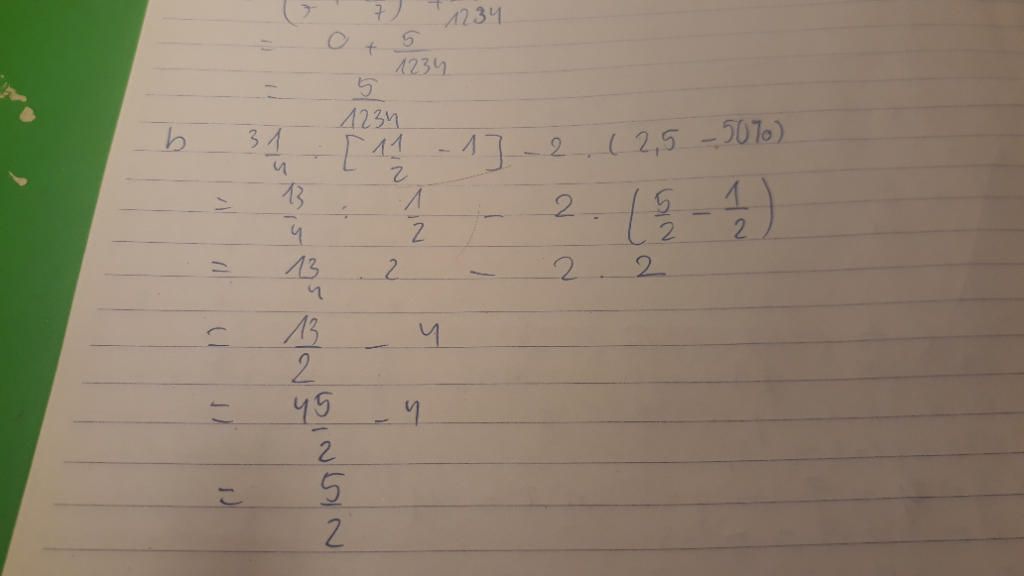 ( 7 ) + 1234
= 0 + 5/1234
= 5/1234
b 3 1/4 : [1 1/2 - 1] - 2 . (2,5 - 50%)
= 13/4 : 1/2 - 2 . (5/2 - 1/2)
= 13/4 . 2 - 2 . 2
= 13/2 - 4
= 4 5/2 - 4
= 5/2